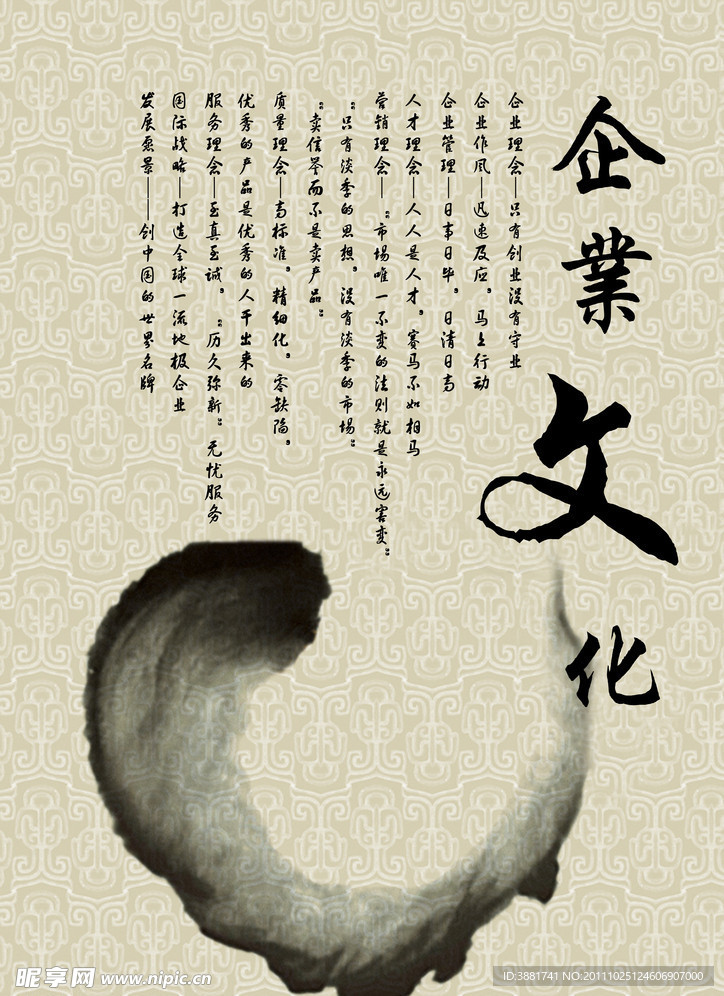 企業文化
企业理念—只有创业没有守业
企业作风—迅速反应，马上行动
企业管理—日事日毕，日清日高
人才理念—人人是人才，赛马不如相马
营销理念—“市场唯一不变的法则就是永远害变”
“只有淡季的思想，没有淡季的市场”
“卖信誉而不是卖产品”
质量理念—高标准，精细化，零缺陷，
优秀的产品是优秀的人干出来的
服务理念—至真至诚，“历久弥新”无忧服务
国际战略—打造全球一流地极企业
发展愿景——创中国的世界名牌
昵享网 www.nipic.cn
ID:3881741 NO:20111025124606907000